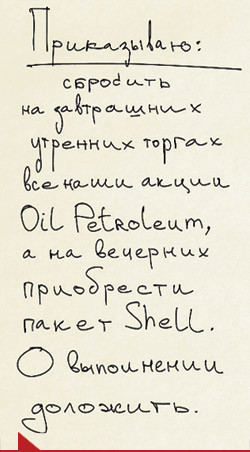 Приказываю:
сбросить
на завтрашних
утренних торгах
все наши акции
Oil Petroleum,
а на вечерних
приобрести
пакет Shell.
О выполнении
доложить.